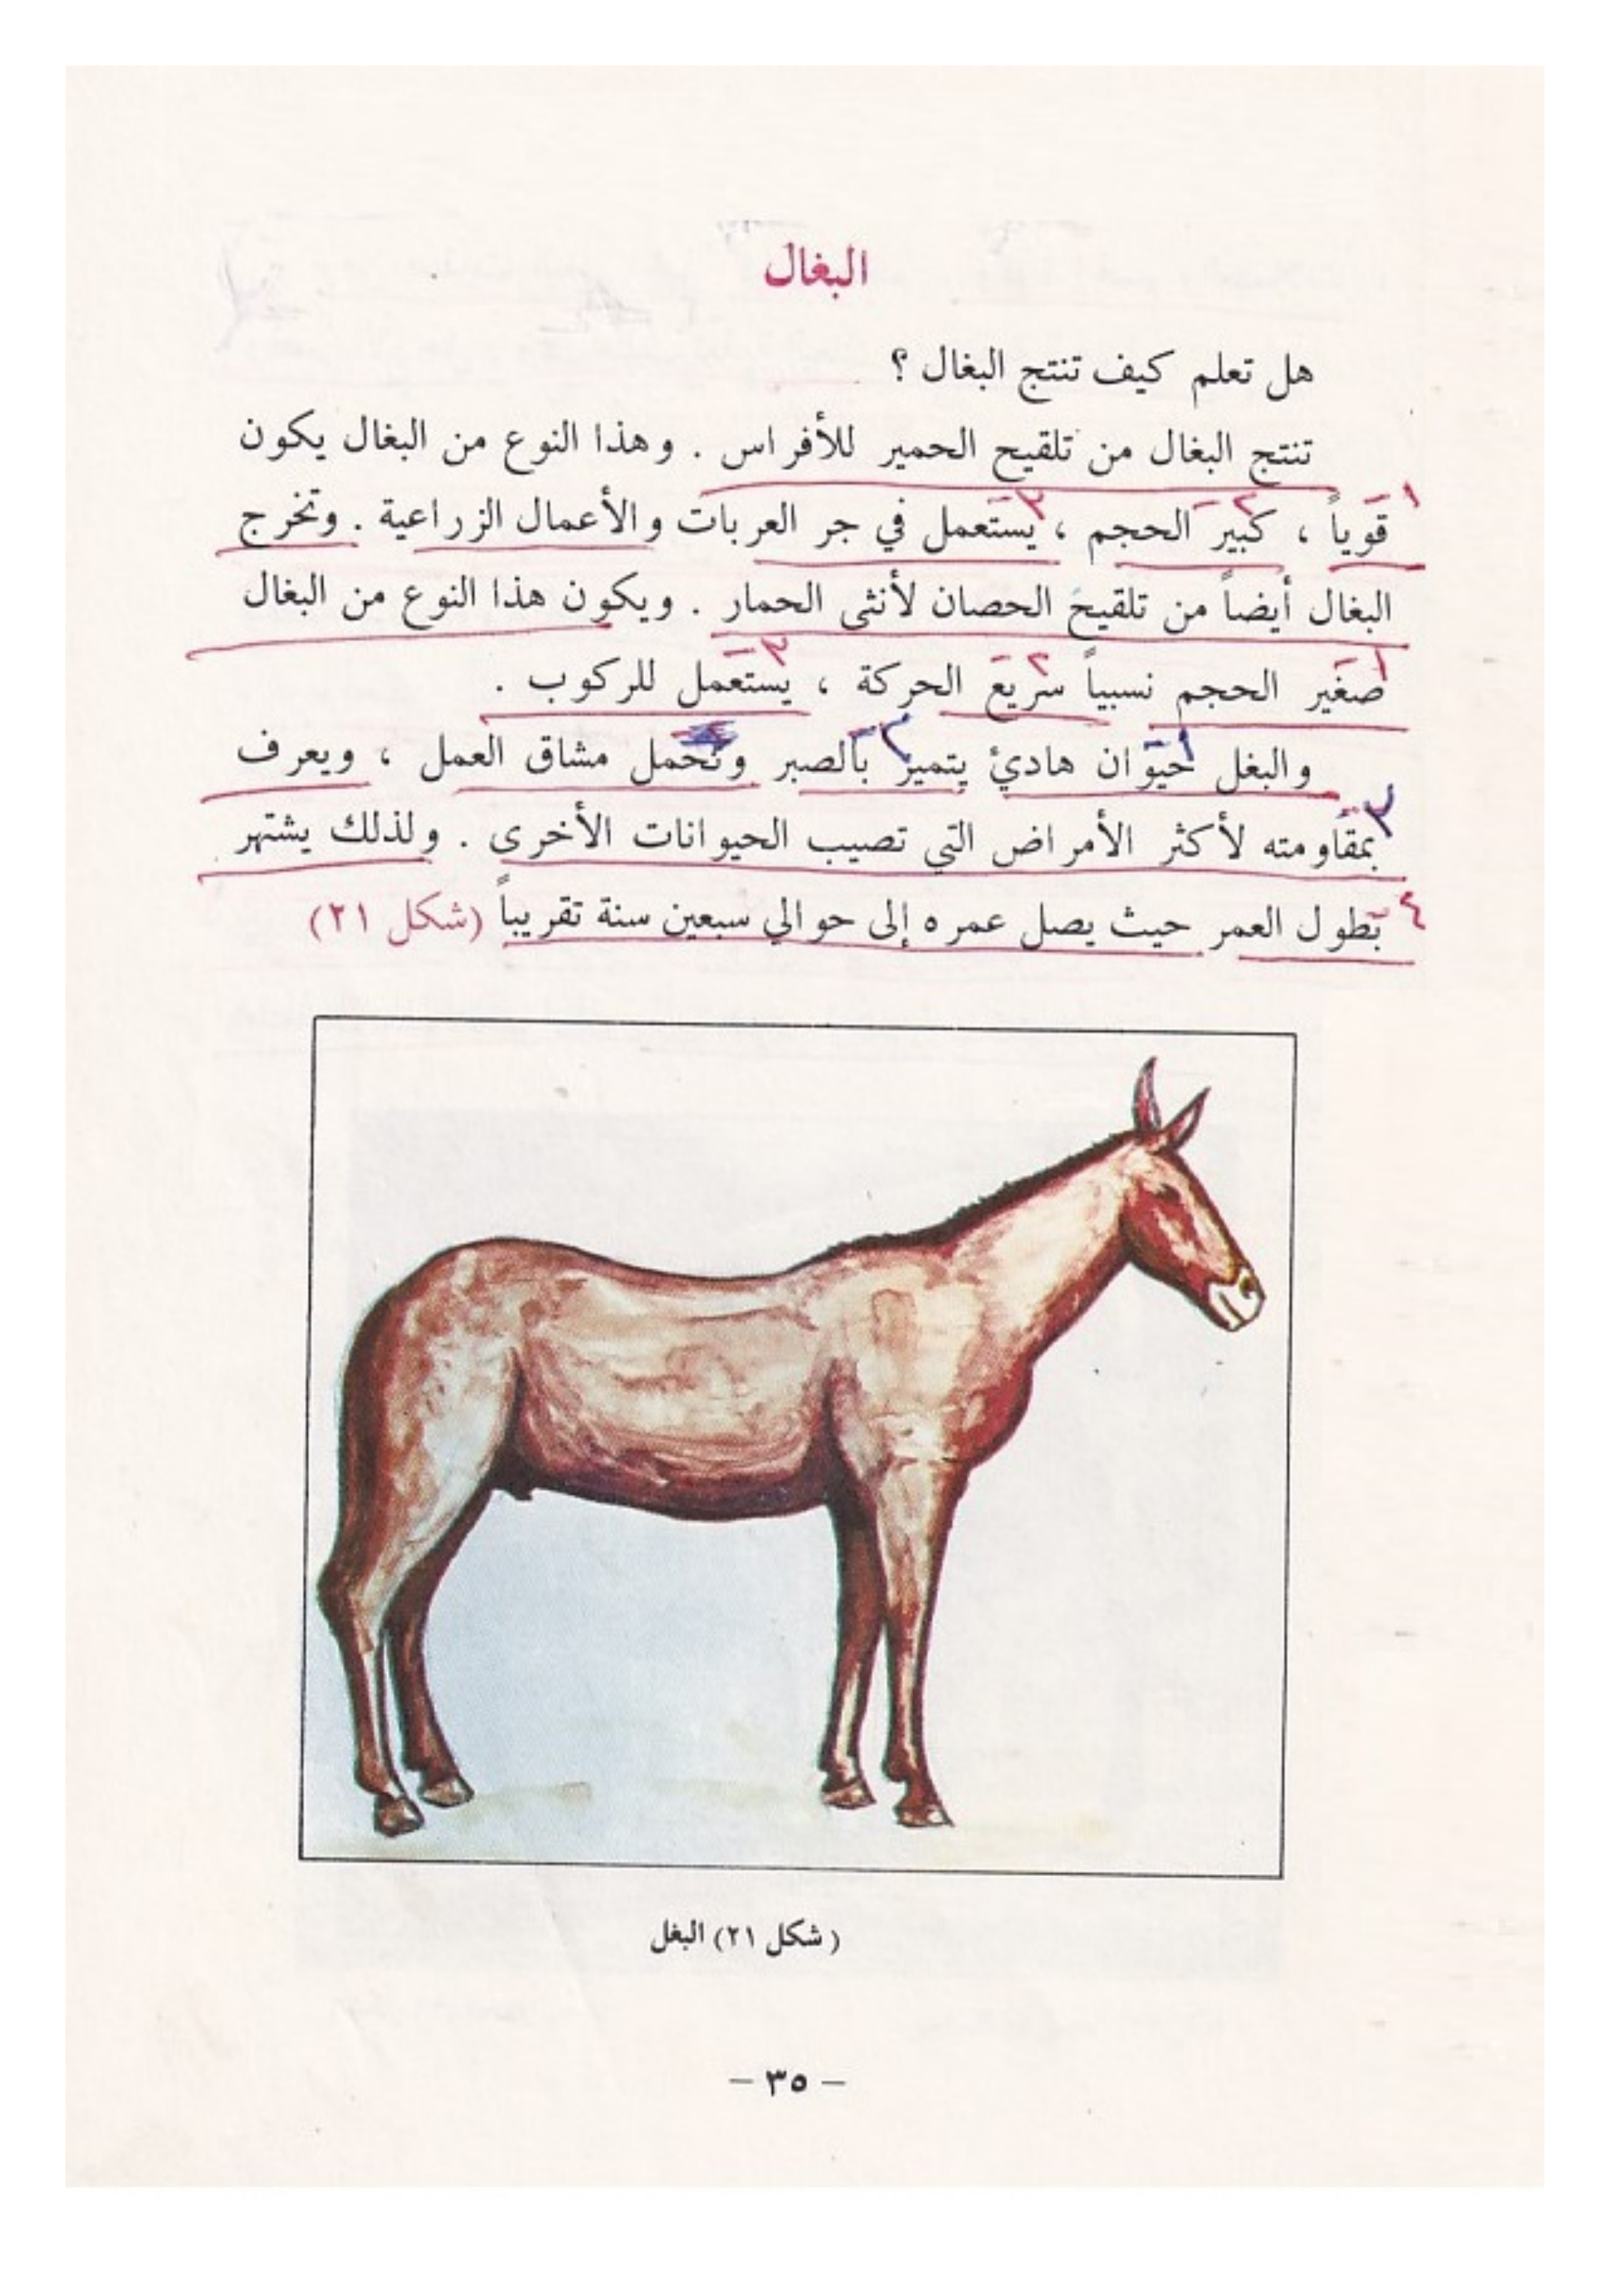 البغال
هل تعلم كيف تنتج البغال ؟
تنتج البغال من تلقيح الحمير للأفراس . وهذا النوع من البغال يكون
قوياً ، كبير الحجم ، يستعمل في جر العربات والأعمال الزراعية . وتخرج
البغال أيضاً من تلقيح الحصان لأنثى الحمار . ويكون هذا النوع من البغال
صغير الحجم نسبياً سريع الحركة ، يستعمل للركوب .
والبغل حيوان هادئ يتميز بالصبر وتحمل مشاق العمل ، ويعرف
بمقاومته لأكثر الأمراض التي تصيب الحيوانات الأخرى . ولذلك يشتهر
بطول العمر حيث يصل عمره إلى حوالي سبعين سنة تقريباً (شكل ٢١)
( شكل ٢١) البغل
– ٣٥ –